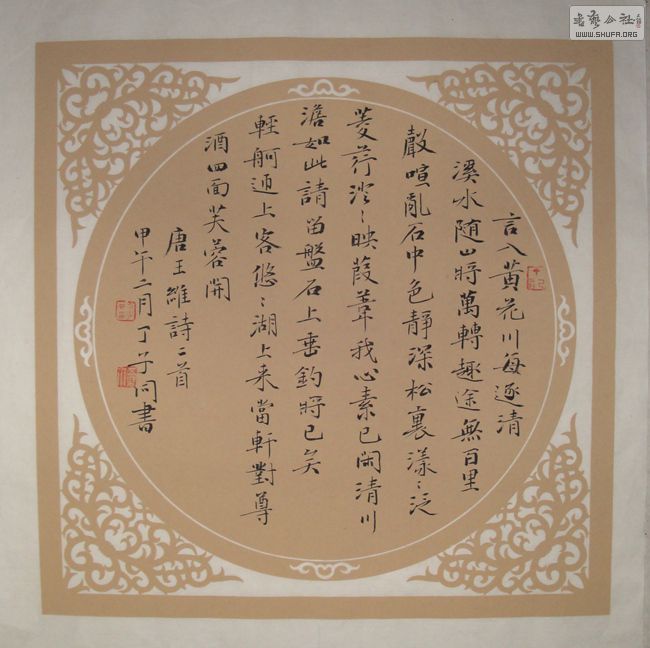 書藝公社
WWW.SHUFA.ORG
言入黄花川每逐清
溪水随山將萬轉趣途無百里
聲喧亂石中色靜深松裏漾〻泛
菱荇澄〻映葭葦我心素已閑清川
澹如此請留盤石上垂釣將已矣
輕舸迎上客悠〻湖上来當軒對尊
酒四面芙蓉開
唐王維詩二首
甲午二月丁子同書